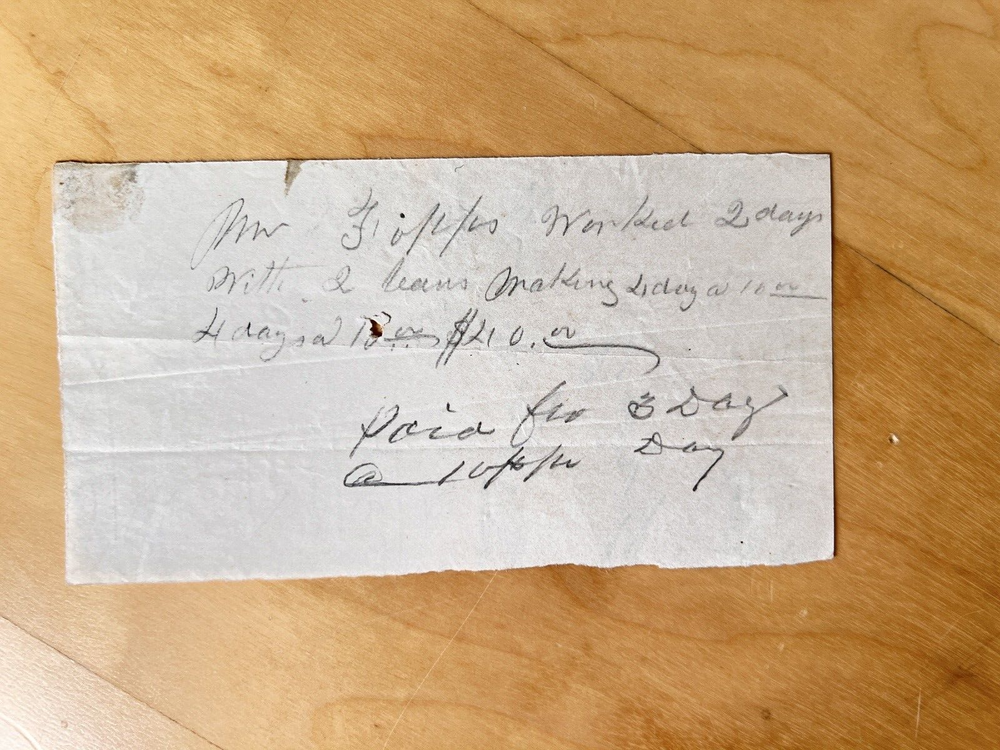 Mr Fipps Worked 2 days
With 2 teams Making 4 day a 10 00
4 days a 10.00 $40.00
Paid for 3 Day
@ 10 Day